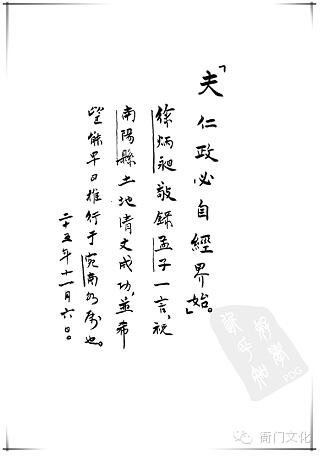 「夫仁政必自經界始。」
徐炳昶敬錄孟子一言，祝
南陽縣土地清丈成功，並希
望能早日推行于宛南各屬也。
二十五年十一月六日。
衙门文化